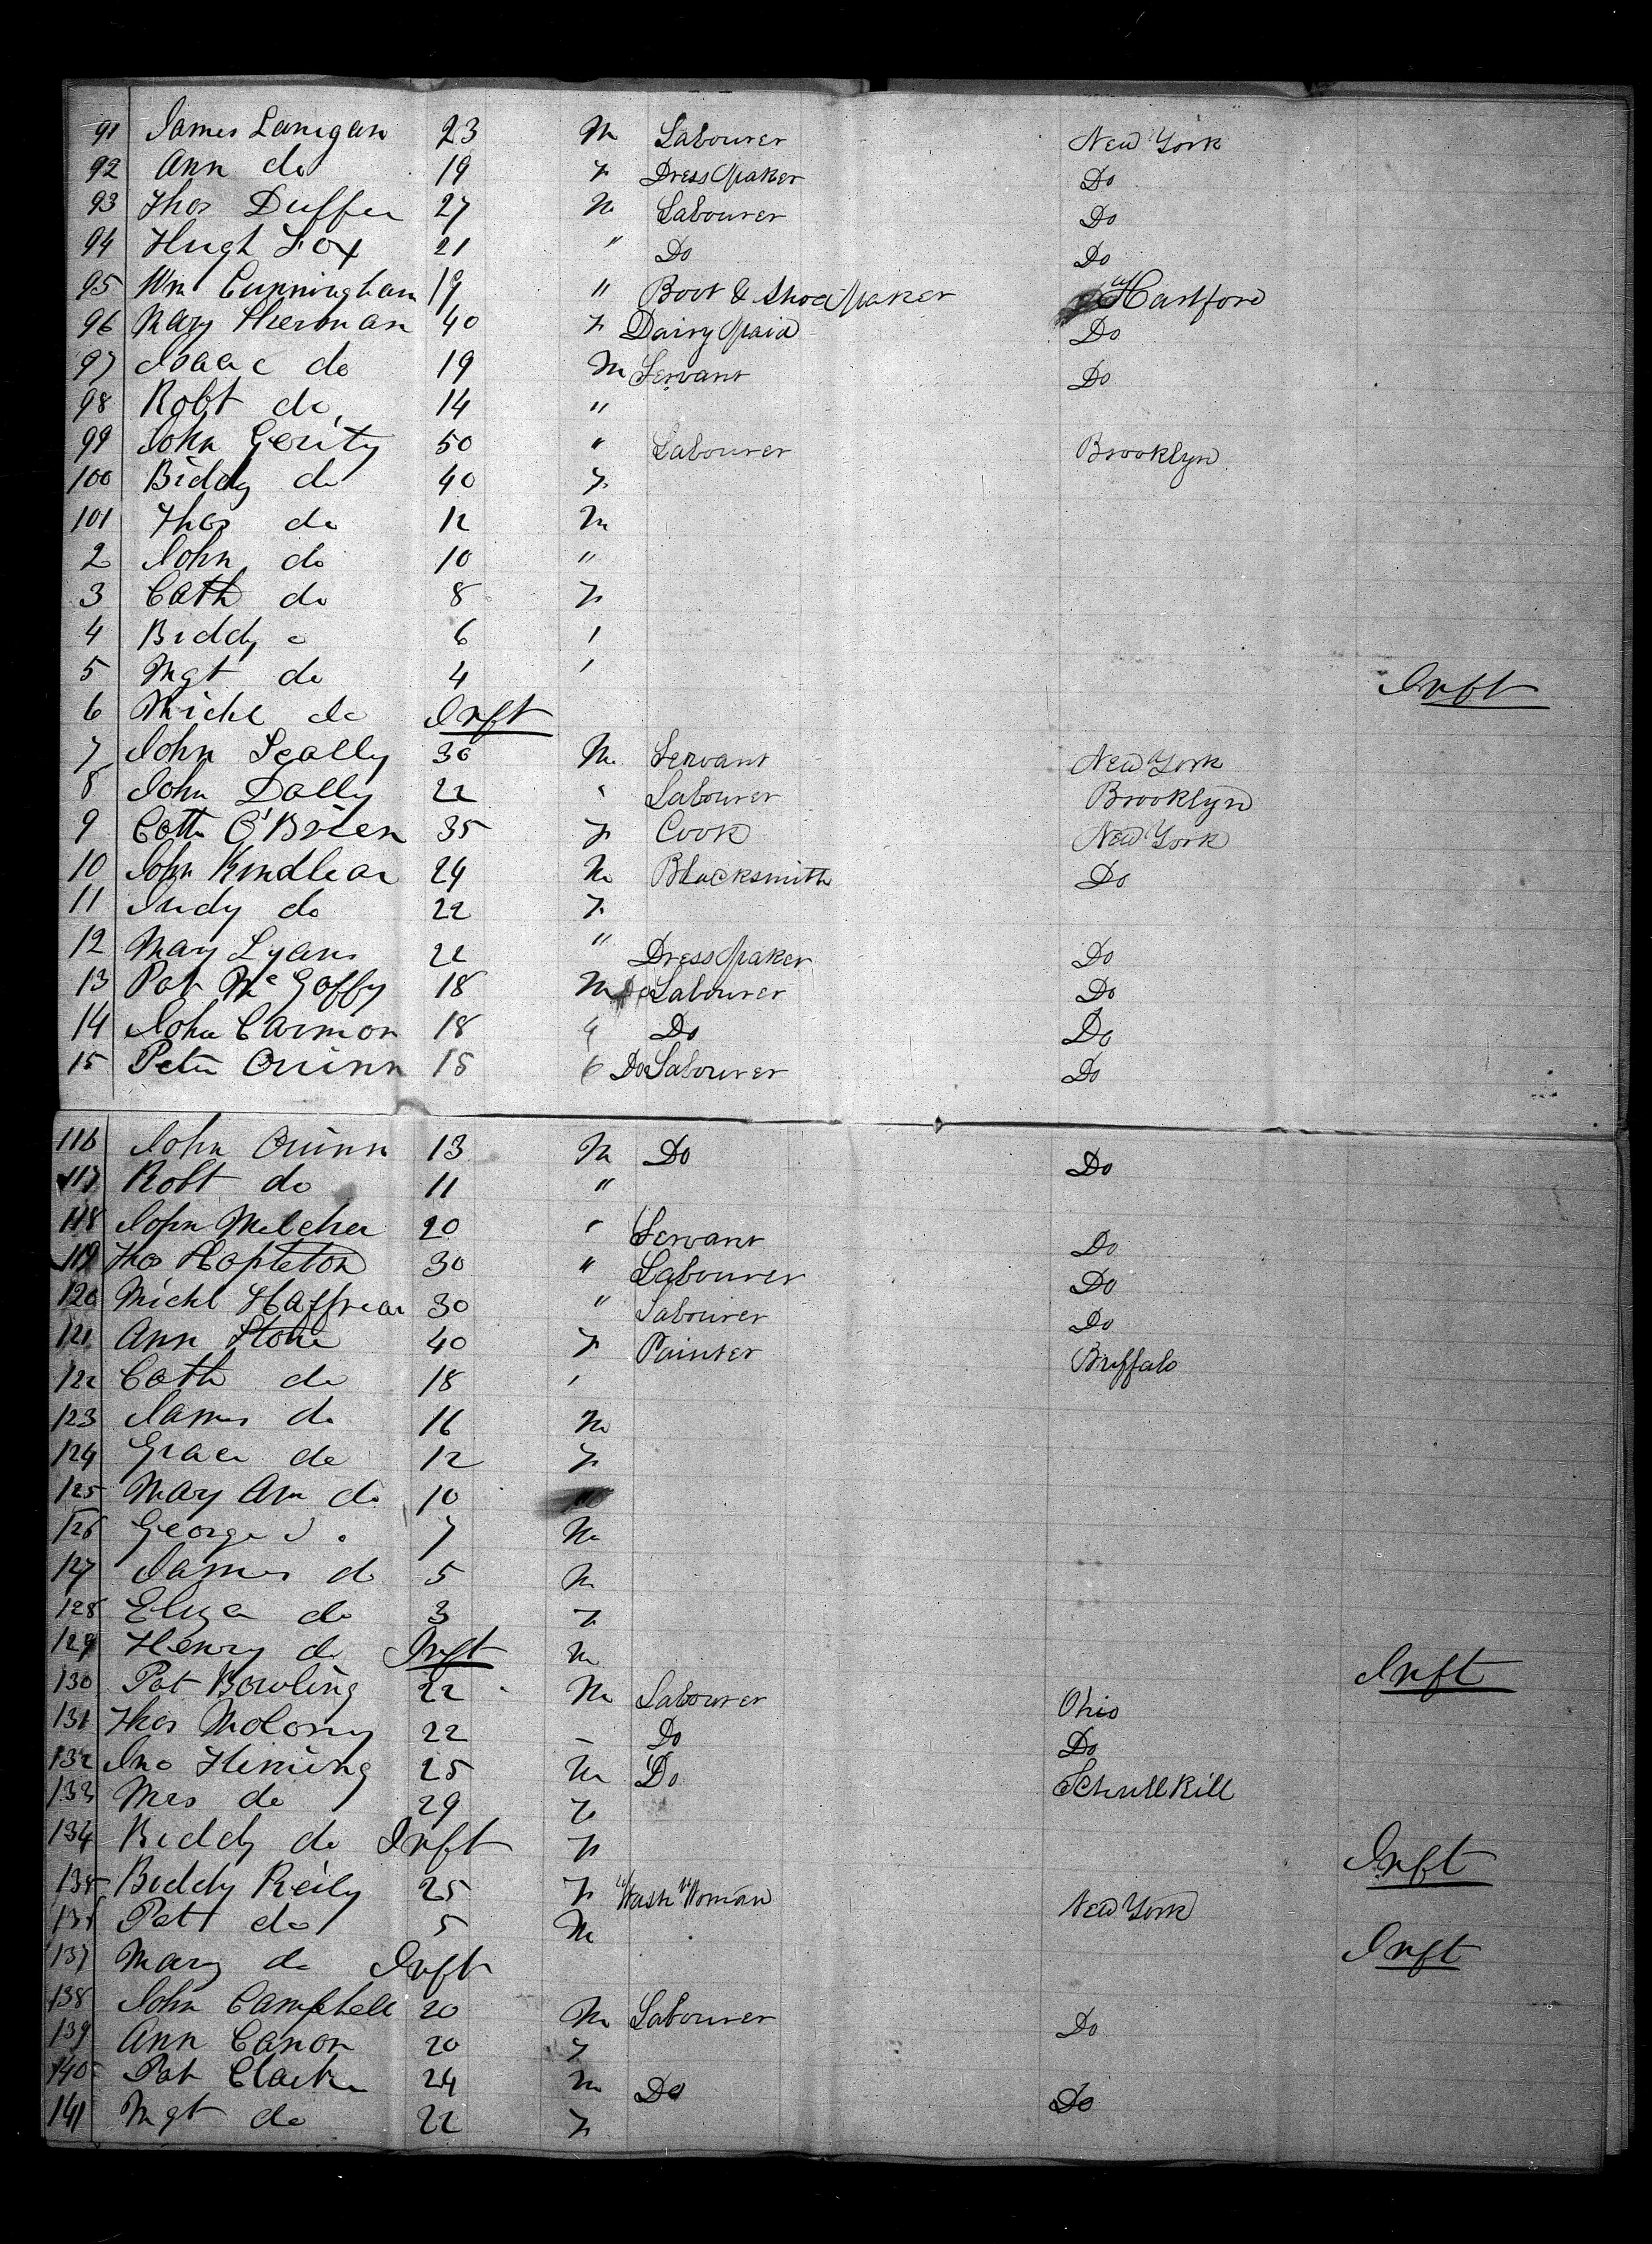 91 James Lanigan 23 M Labourer New York
92 Ann do 19 F Dress Maker Do
93 Thos Duffy 27 M Labourer Do
94 Hugh Fox 21 " Do Do
95 Wm Cunningham 19 " Boot & Shoe Maker Hartford
96 Mary Sherman 40 F Dairy Maid Do
97 Isaac do 19 M Servant Do
98 Robt do 14 "
99 John Gerity 50 " Labourer Brooklyn
100 Biddy do 40 F
101 Thos do 12 M
2 John do 10 "
3 Cath do 8 F
4 Biddy 6
5 Mgt do 4
6 Michl do Inft Inft
7 John Scally 30 M Servant New York
8 John Dally 22 " Labourer Brooklyn
9 Cath O'Brien 35 F Cook New York
10 John Kindlear 24 M Blacksmith Do
11 Judy do 22 F
12 Mary Lyans 22 " Dress Maker Do
13 Pat McGaffy 18 M Labourer Do
14 John Carmon 18 " Do Do
15 Peter Quinn 15 Do Labourer Do
116 John Quinn 13 M Do Do
117 Robt do 11 "
118 John Melcher 20 " Servant Do
119 Thos Hopleton 30 " Labourer Do
120 Michl 30 " Labourer Do
121 Ann Stone 40 F Painter Buffalo
122 Cath do 18
123 James do 16 M
124 Grace do 12 F
125 Mary Ann do 10
126 George 7 M
127 James do 5 M
128 Eliza do 3 F
129 Henry do Inft M Inft
130 Pat Bowling 22 M Labourer Ohio
131 Thos Molony 22 Do Do
132 Jno Fleming 25 M Do Schullkill
133 Mrs do 29 F
134 Biddy do Inft F Inft
135 Biddy Reily 25 F Wash Woman New York
136 Pat do 5 M
137 Mary do Inft Inft
138 John Campbell 20 M Labourer Do
139 Ann Canon 20 F
140 Pat Clarke 24 M Do Do
141 Mgt do 22 F